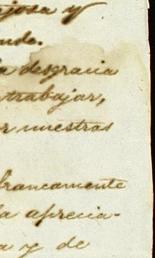 josa y
de.
desgracia
trabajar,
r nuestras
francamente
la aprecia-
a y de